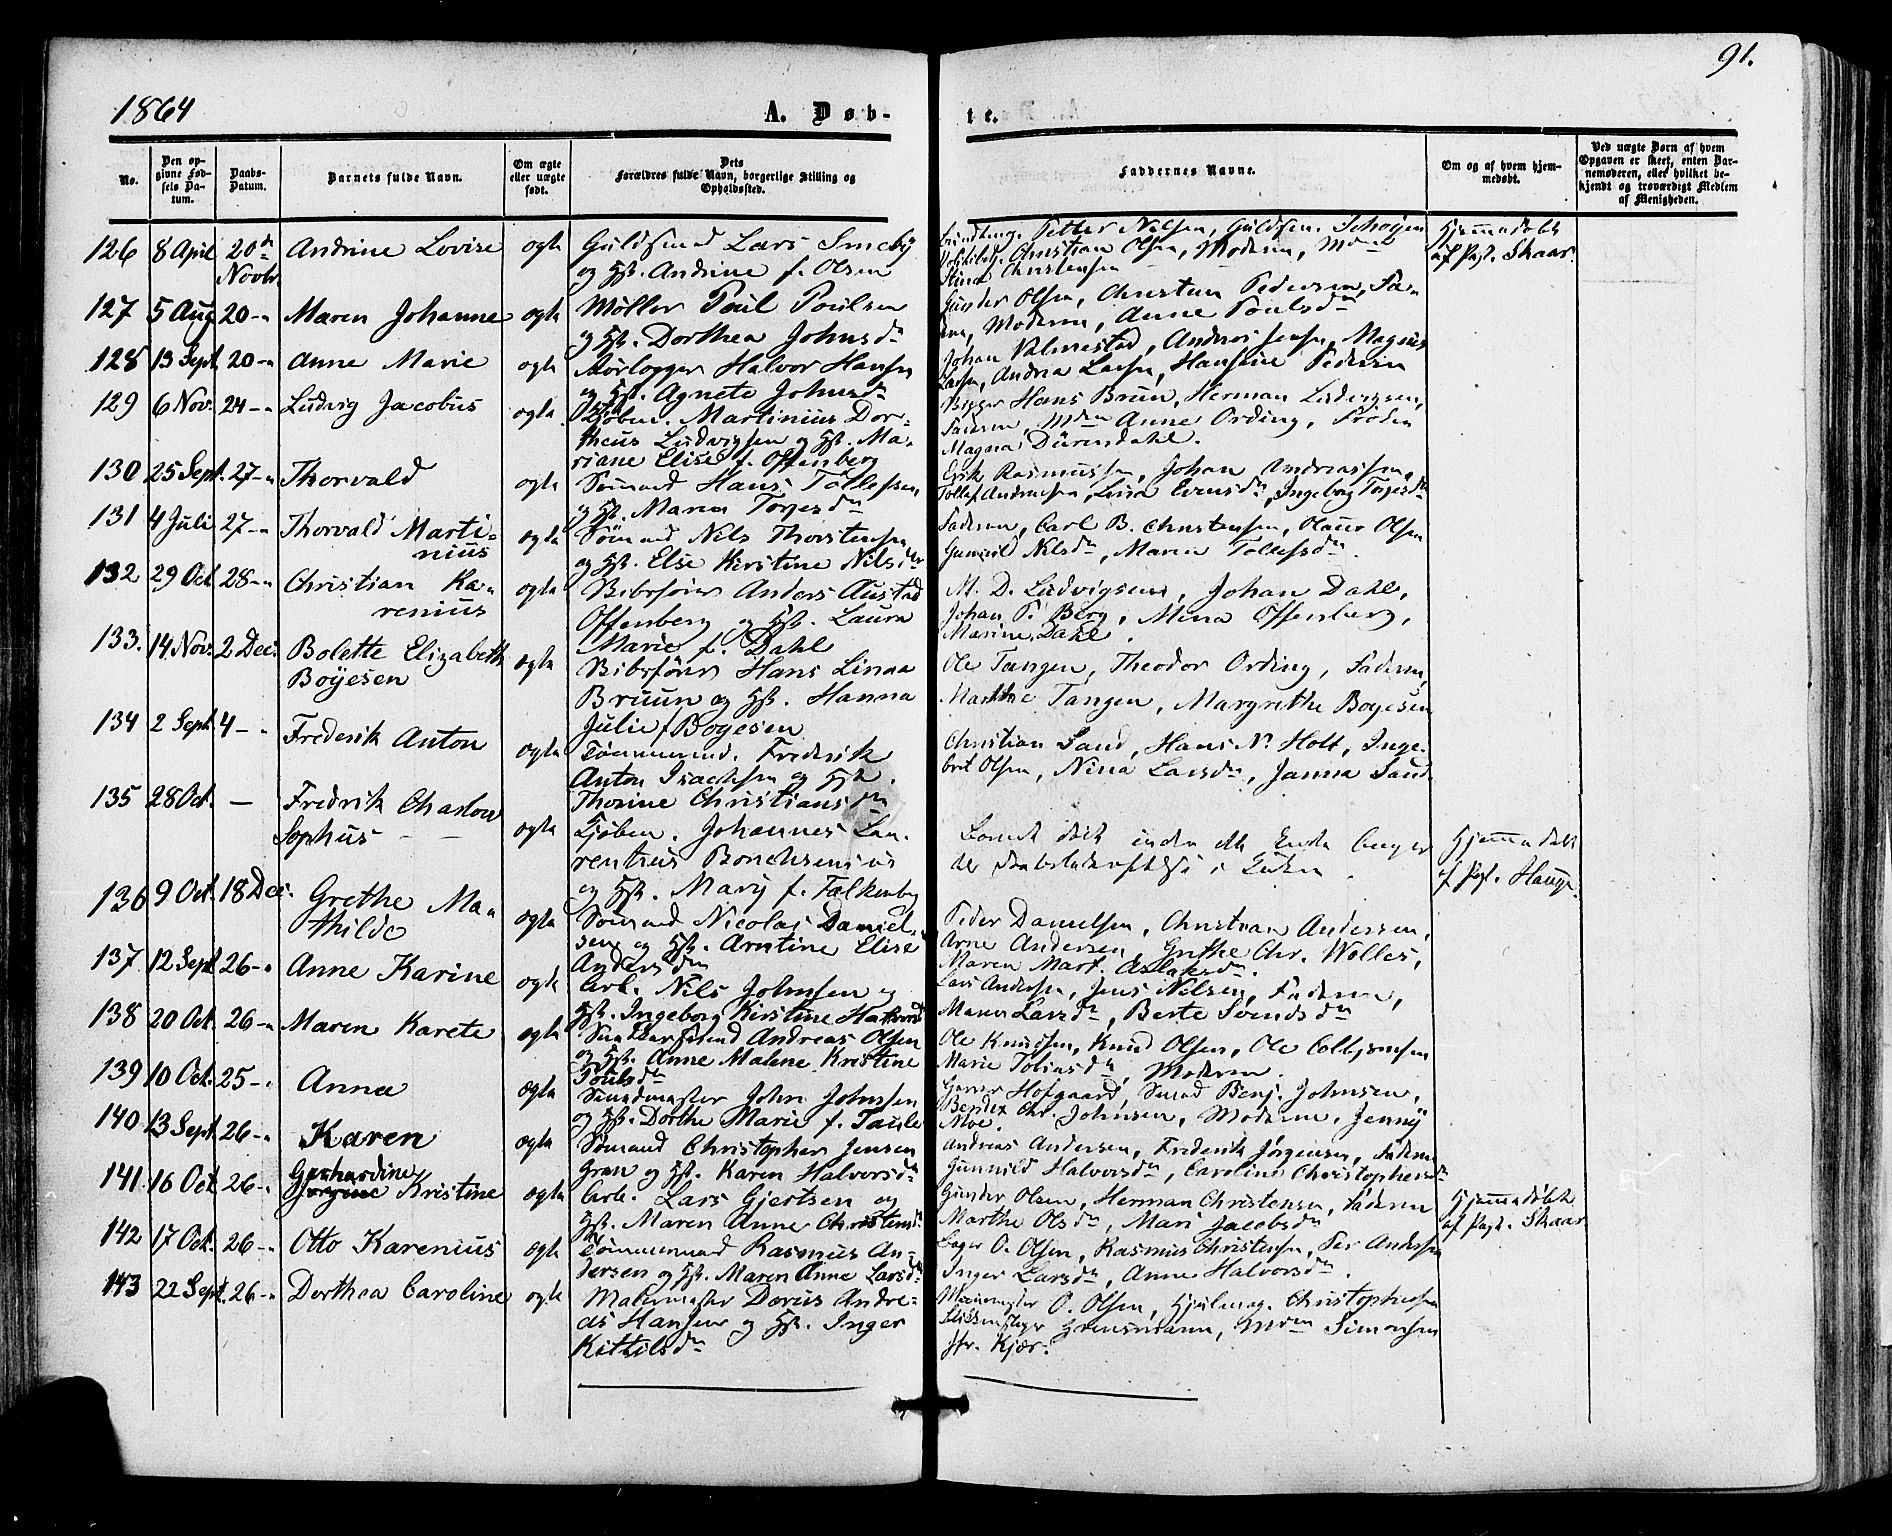 91.
1864
A. Døb-
te.
No.
Den opgivne Fødsels Datum.
Daabs-Datum.
Barnets fulde Navn.
Om ægte eller uægte født.
Dets Forældres fulde Navn, borgerlige Stilling og Opholdssted.
Faddernes Navne.
Om og af hvem hjemmedøbt.
Ved uægte Børn af hvem Opgaven er skeet, enten Barnemoderen, eller hvilket bekjendt og troværdigt Medlem af Menigheden.
126 8 April 20de Novbr Andrine Lovise ægte Guldsmed Lars Smeby
og Hst. Andrine f. Olsen
Petter Nilsen, Guldsm. Schøyen
Christian Olsen, Moderen,
Stina Christensen
Hjemmedøbt
af Past. Skaar.
127 5 Aug 20 -" Maren Johanne ægte Møller Poul Poulsen
og Hst. Dorthea Johnsdn
Gunder Olsen, Christen Pedersen, Fa-
ren, Moderen, Anne Poulsdn
128 13 Sept 20 -" Anne Marie ægte Halvor Hansen
og Hst. Agnete Johnsdn
Johan Valmestad, Anders Jensen, Magnus
Larsen, Andrea Larsen, Hansine Pedersen
129 6 Nov. 24 -" Ludvig Jacobus ægte Kjøbm. Martinius Dor-
theus Ludvigsen og Hst. Ma-
riane Elise f. Offenberg
Hans Bruun, Herman Ludvigsen,
Faderen, Mdm Anne Ording, Frøken
Magna Dürendahl.
130 25 Sept. 27 -" Thorvald ægte Sømand Hans Tollefsen
og Hst. Maren Torjesdn
Erik Rasmussen, Johan Andreassen,
Tollef Andersen, Lina Evensdn, Ingeborg Torjesdn
131 4 Juli 27 -" Thorvald Marti-
nius ægte Sømand Nils Thorstensen
og Hst. Else Kirstine Nilsdn
Faderen, Carl B. Christensen, Olaus Olsen
Gunnild Nilsdn, Maren Tollefsdn.
132 29 Oct 28 -" Christian Ka-
renius ægte Bibsfører Anders Austad
Offenberg og Hst. Laura
Marie f. Dahl
M. D. Ludvigsen, Johan Dahl,
Johan P. Berg, Mina Offenberg,
Marine Dahl.
133. 14 Nov. 2 Dec. Bolette Elizabeth
Boyesen ægte Bibsfører Hans Linaa
Bruun og Hst. Hanna
Julie f. Boyesen
Ole Tangen, Theodor Ording, Faderen,
Marthe Tangen, Margrethe Boyesen
134 2 Sept. 4 -" Frederik Anton ægte Tømmermd. Frederik
Anton Isachsen og Hst.
Thorine Christiansdn
Christian Sand, Hans N. Holt, Inge-
bret Olsen, Nina Larsdn, Janna Sand
135 28 Oct. — Fredrik Charlow
Sophus ægte Kjøbm. Johannes Lau-
rentius
og Hst. Mary f. Falkenberg
Barnet død inden
Hjemmedøbt
af Past. Hauge.
136 9 Oct. 18 Dec. Grethe Ma-
thilde ægte Sømand Nicolas Daniel-
sen og Hst. Arntine Elise
Andersdn
Peder Danielsen, Christian Andersen,
Arne Andersen, Grethe Chr. Wolles,
Maren Mart. Aslaksdn.
137 12 Sept 26 -" Anne Karine ægte Arb. Nils Johnsen og
Hst. Ingeborg Kirstine
Lars Andersen, Jens Nilsen, Faderen,
Maren Larsdn, Berte Svendsdn
138 20 Oct. 26 -" Maren Karete ægte Andreas Olsen
og Hst. Anne Malene Kristine
Poulsdn
Ole Knudsen, Knud Olsen, Ole
Marie Tobiasdn, Moderen.
139 10 Oct. 25 -" Anna ægte Smedmester John Johnsen
og Hst. Dorthe Marie f. Taule
Hofgaard, Smed Benj. Johnsen,
Bendix Chr. Johnsen, Moderen, Jenny
Moe.
140 13 Sept. 26 -" Karen ægte Sømand Christopher Jensen
Gran og Hst. Karen Halvorsdn
Andreas Andersen, Frederik Jørgensen, Faderen
Gunnild Halvorsdn, Caroline Christophersdn
141. 16 Oct 26 -" Gerhardine
Kristine ægte Arb. Lars Gjertsen og
Hst. Maren Anne Christensdn
Gunder Olsen, Herman Christensen, Faderen
Marthe Olsdn, Mari Jacobsdn
Hjemmedøbt
af Past. Skaar
142 17 Oct. 26 -" Otto Karenius ægte Tømmermd Rasmus An-
dersen og Hst. Maren Anne Larsdn
O. Olsen, Rasmus Christensen, Per Andersen
Inger Larsdn, Anne Halvorsdn.
143 22 Sept. 26 -" Dorthea Caroline ægte Malermester Darius Andre-
as Hansen og Hst. Inger
Kittilsdn
O. Olsen, Hjulmag. Christophersen
Mdm Simonsen
Jfr. Kjær.